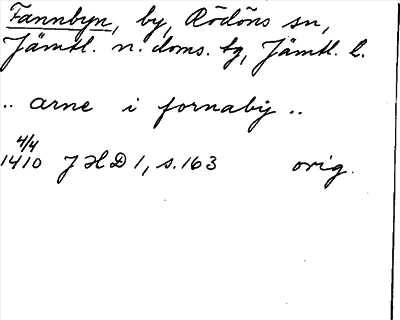 Fannbyn, by, Rödöns sn,
Jämtl. n. doms. tg, Jämtl. l.
.. arne i fornaby ..
4/4
1410 JHD 1, s. 163 orig.